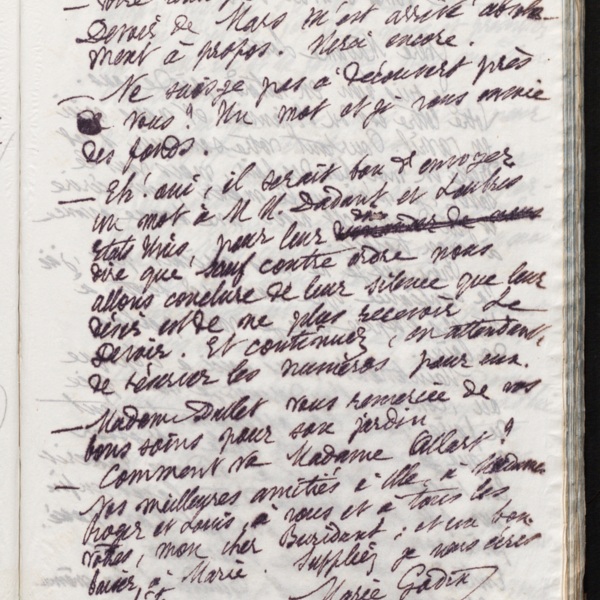 Devoir de Mars m'est arrivé
ment à propos. Merci encore.
— Ne suis-je pas à découvert près
de vous? Un mot et je vous envoie
des fonds.
— Eh! oui, il serait bon d'envoyer
un mot à M M. Dadant et
états Unis, pour leur
dire que, sauf contre ordre nous
allons conclure de leur silence que leur
désir est de ne plus recevoir Le
Devoir. Et continuez, en attendant,
de réserver les numéros pour eux.
— Madame Dallet vous remercie de vos
bons soins pour son jardin
— Comment va Madame Allart?
Nos meilleures amitiés à elle, à Madame
Roger et Louis, à vous et à tous les
vôtres, mon cher Buridant; et un bon
baiser à Marie.
Marie Godin